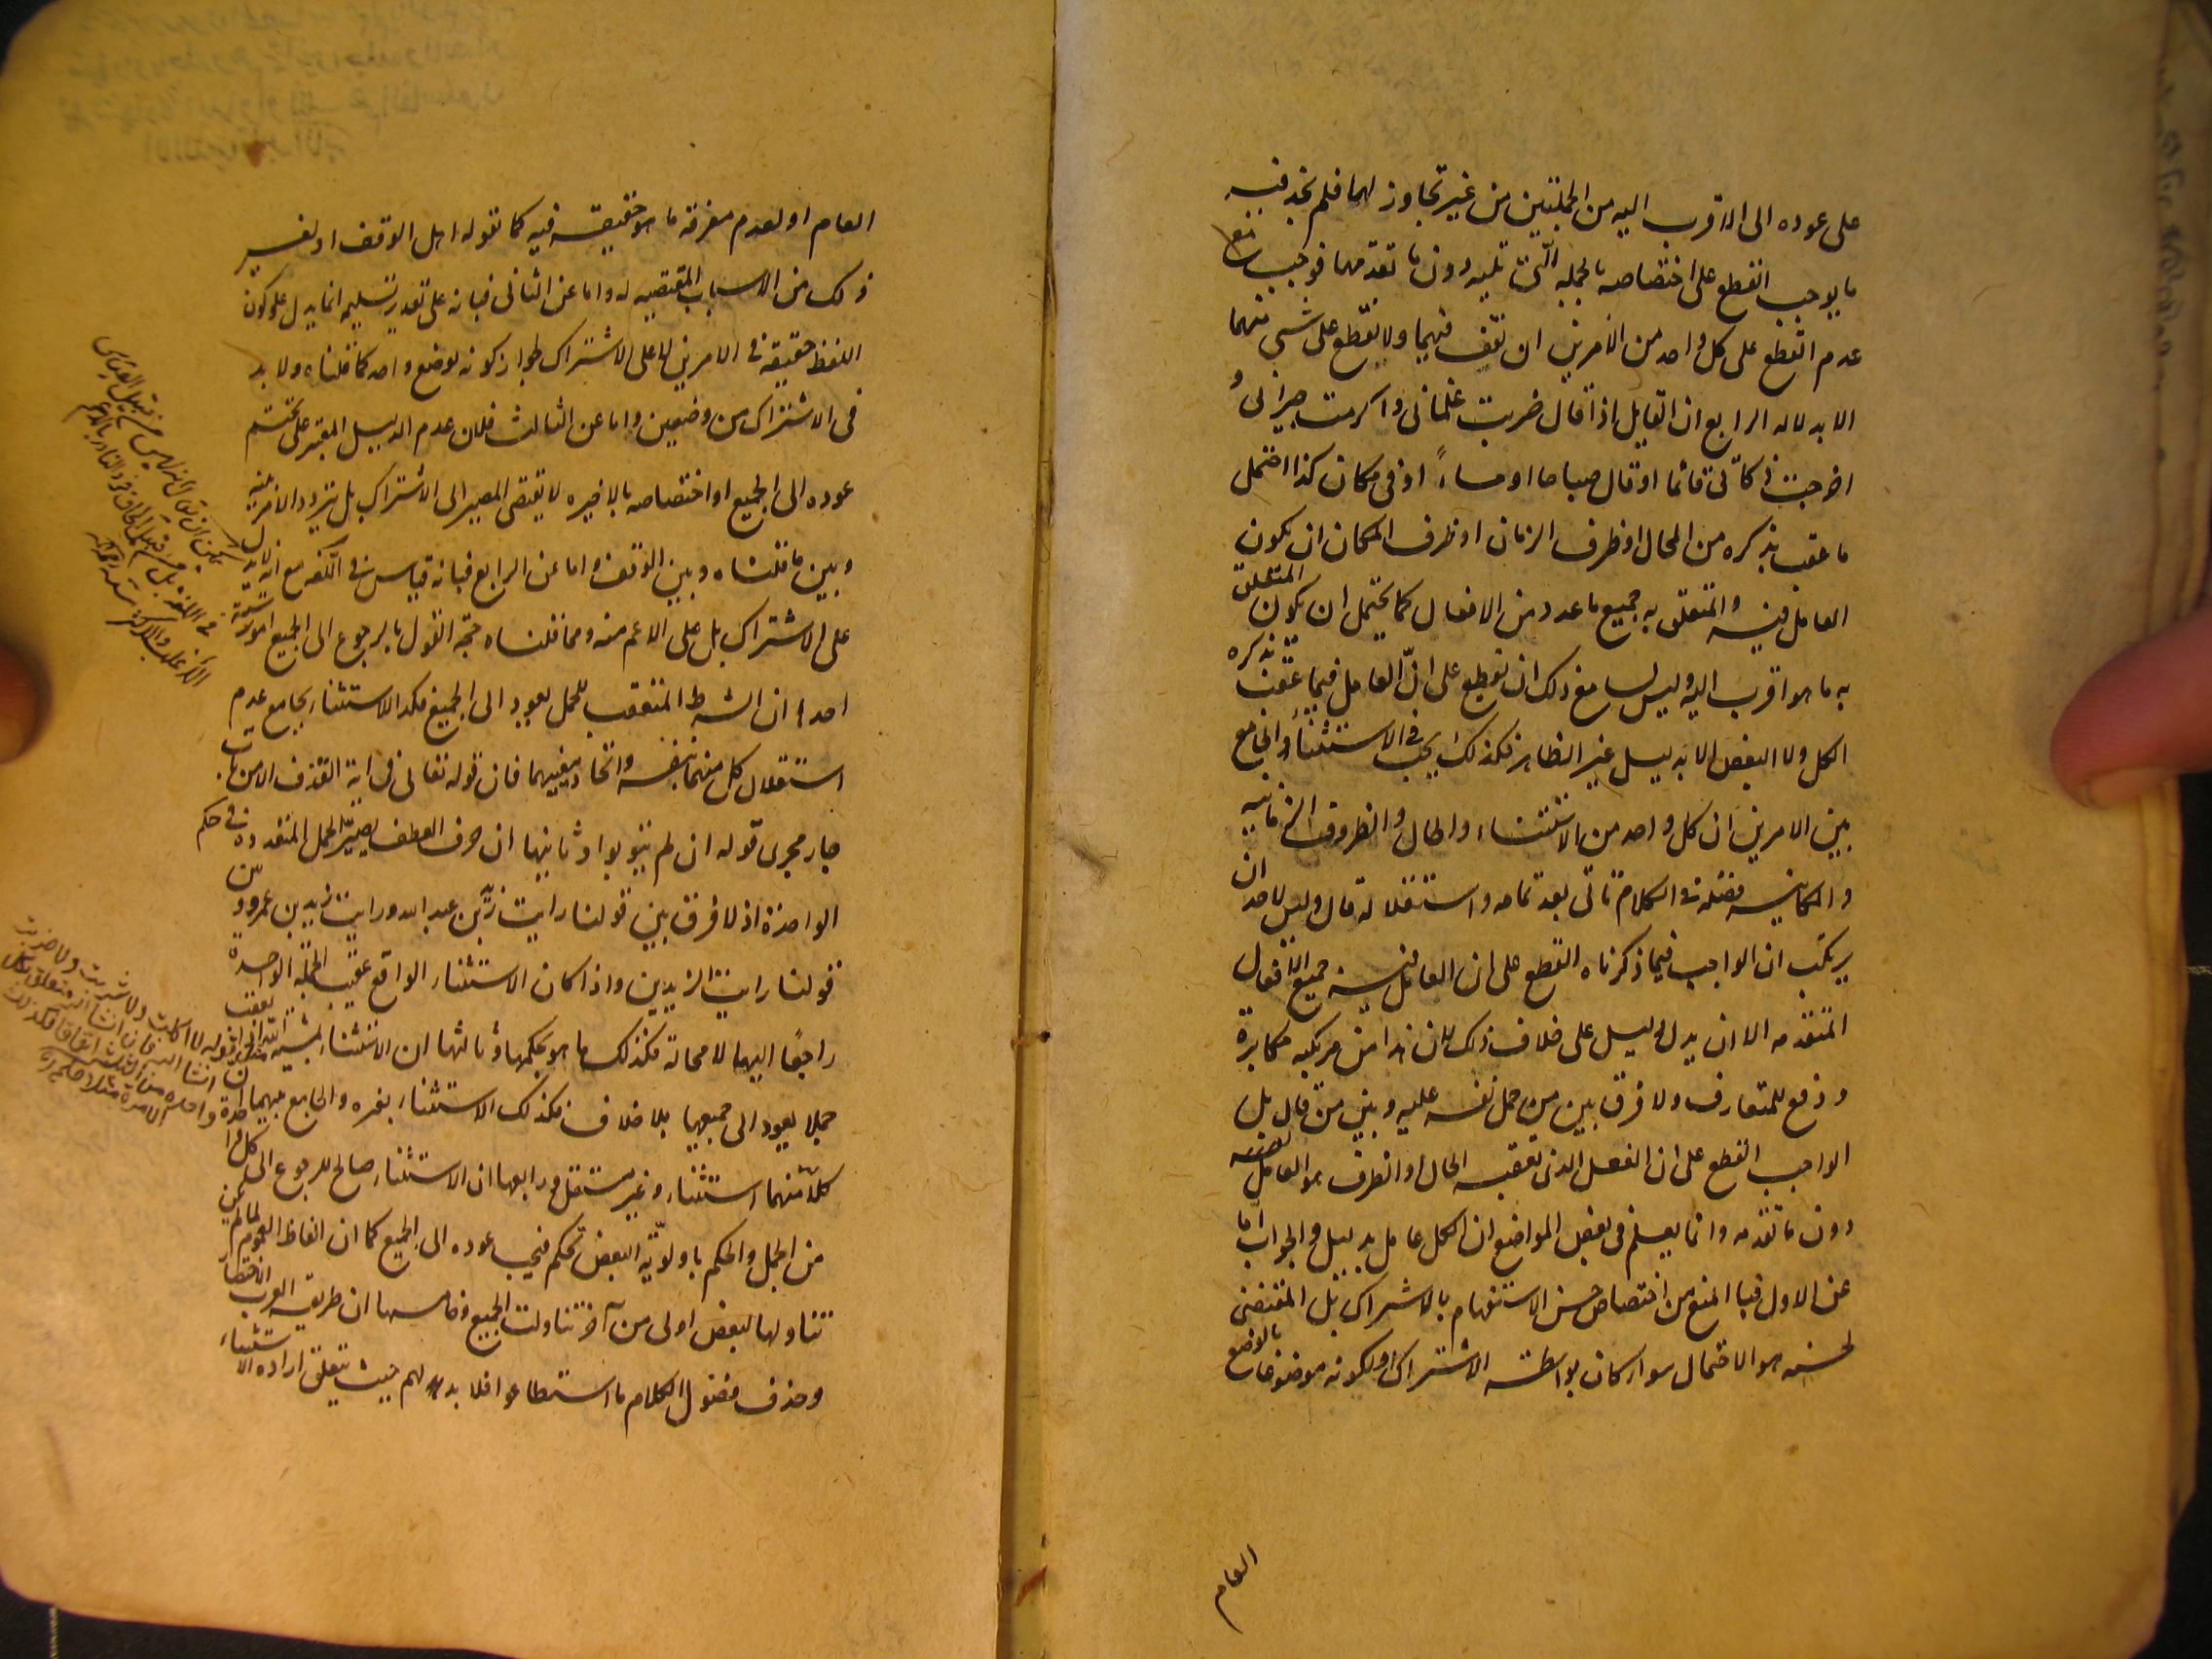 على عوده الى الاقرب اليه من الجملتين من غير تجاوز لهما فلم نجد فيه
ما يوجب القطع على اختصاصه بالجملة التي تليه دون ما تقدمها فوجب مع
عدم القطع على كل واحد من الامرين ان نقف فيهما ولا نقطع على شيء منهما
الا بدلاله الرابع ان القايل اذا قال ضربت غلماني واكرمت جيراني و
اخرجت زكاتي قائما او قال صباحا او مساءً او في مكان كذا احتمل
ما عقب بذكره من الحال او ظرف الزمان او ظرف المكان ان يكون
العامل فيه والمتعلق به جميع ما عدد من الافعال كما يحتمل ان يكون المتعلق
به ما هو اقرب اليه وليس لسامع ذلك ان يقطع على انّ العامل فيما عقب بذكره
الكل ولا البعض الا بدليل غير الظاهر فكذلك يجب في الاستثناء والجامع
بين الامرين ان كل واحد من الاستثناء والحال والظروف الزمانيه
والمكانيه فضلة في الكلام تاتي بعد تمامه واستقلاله قال وليس لاحد ان
يرتكب ان الواجب فيما ذكرناه القطع على ان العامل فيه جميع الافعال
المتقدمه الا ان يدل دليل على خلاف ذلك لان هذا من مرتكبه مكابرة
و دفع للمتعارف ولا فرق بين من حمل نفسه عليه وبين من قال بل
الواجب القطع على ان الفعل الذي تعقبه الحال او الظرف هو العامل
دون ما تقدمه وانما يعلم في بعض المواضع ان الكل عامل بدليل والجواب اما
عن الاول فبا المنع من اختصاص حسن الاستفهام بالاشتراك بل المقتضي
لحسنه هو الاحتمال سواء كان بواسطه الاشتراك او لكونه موضوعا بالوضع
العام
العام او لعدم معرفة ما هو حقيقه فيه كما تقوله اهل الوقف او لغير
ذلك من الاسباب المقتضيه له واما عن الثاني فبانه على تقدير تسليمه انما يدل على كون
اللفظ حقيقة في الامرين لا على الاشتراك لجواز كونه بوضع واحد كما قلناه ولا بد
في الاشتراك من وضعين واما عن الثالث فلان عدم الدليل المعتبر على تحتم
عوده الى الجميع او اختصاصه بالاخيره لا يقتضي المصير الى الاشتراك بل يتردد الامر بينه
وبين ما قلناه وبين الوقف واما عن الرابع فبانه قياس في اللغه مع انه لا يدل
على الاشتراك بل على الاعم منه ومما قلناه حجة القول بالرجوع الى الجميع امور ستة
احدها ان الشرط المتعقب للجمل يعود الى الجميع فكذا الاستثناء بجامع عدم
استقلال كل منهما بنفسه واتحاد معنييهما فان قوله تعالى في اية القذف الا من تاب
جار مجرى قوله ان لم يتوبوا وثانيها ان حرف العطف يصير الجمل المتعدده في حكم
الواحدة اذ لا فرق بين قولنا رايت زيد بن عبد الله ورايت زيد بن عمرو وبين
قولنا رايت الزيدين واذا كان الاستثناء الواقع عقيب الجملة الواحدة
راجعًا اليها لا محالة فكذلك ما هو بحكمها وثالثها ان الاستثناء بمشيه الله اذا تعقب
جملا يعود الى جميعها بلا خلاف فكذلك الاستثناء بغيره والجامع بينهما ان
كلّا منهما استثناء وغير مستقل ورابعها ان الاستثناء صالح للرجوع الى كل واحدة
من الجمل والحكم باولويّة البعض تحكم فيجب عوده الى الجميع كما ان الفاظ العموم لما لم يكن
تناولها لبعض اولى من آخر تناولت الجميع وخامسها ان طريقه العرب الاختصار
وحذف فضول الكلام ما استطاعوا فلا بد لهم حيث يتعلق اراده الاستثناء